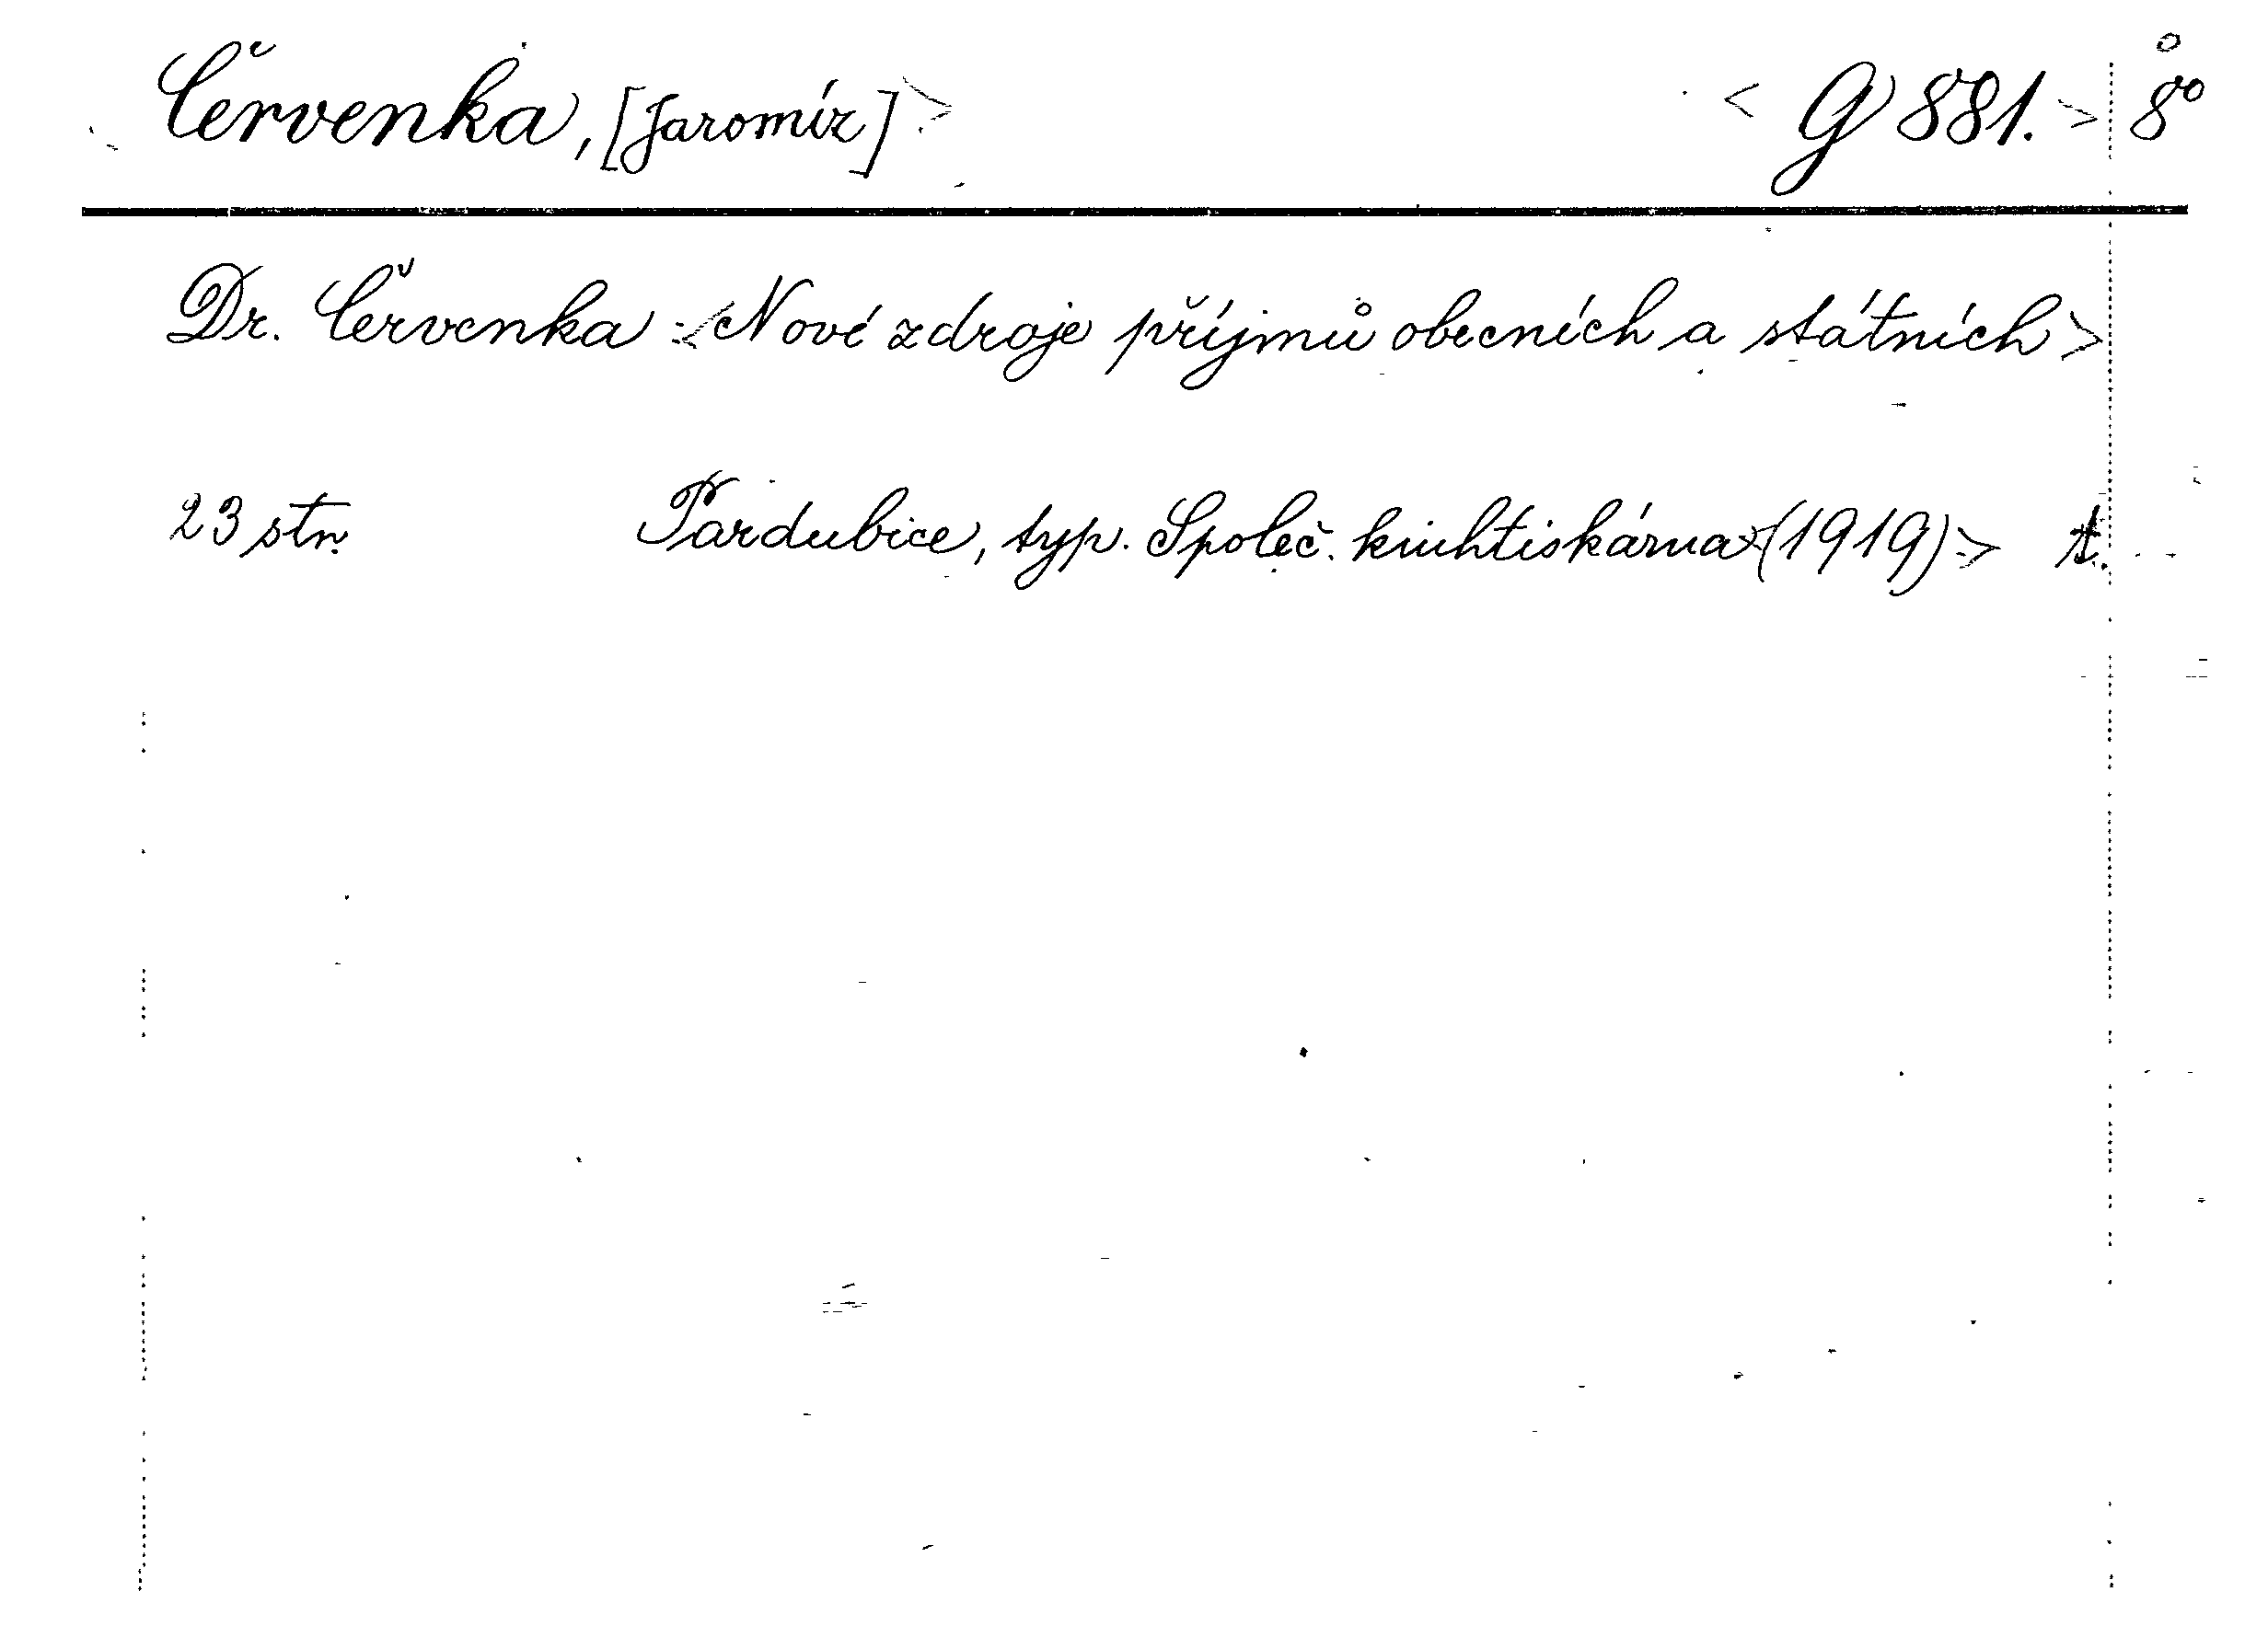 Červenka, [Jaromír] > < G 881. > 8°
Dr. Červenka : < Nové zdroje příjmů obecních a státních >
23 str. Pardubice, typ. Společ. knihtiskárna < (1919) > A.